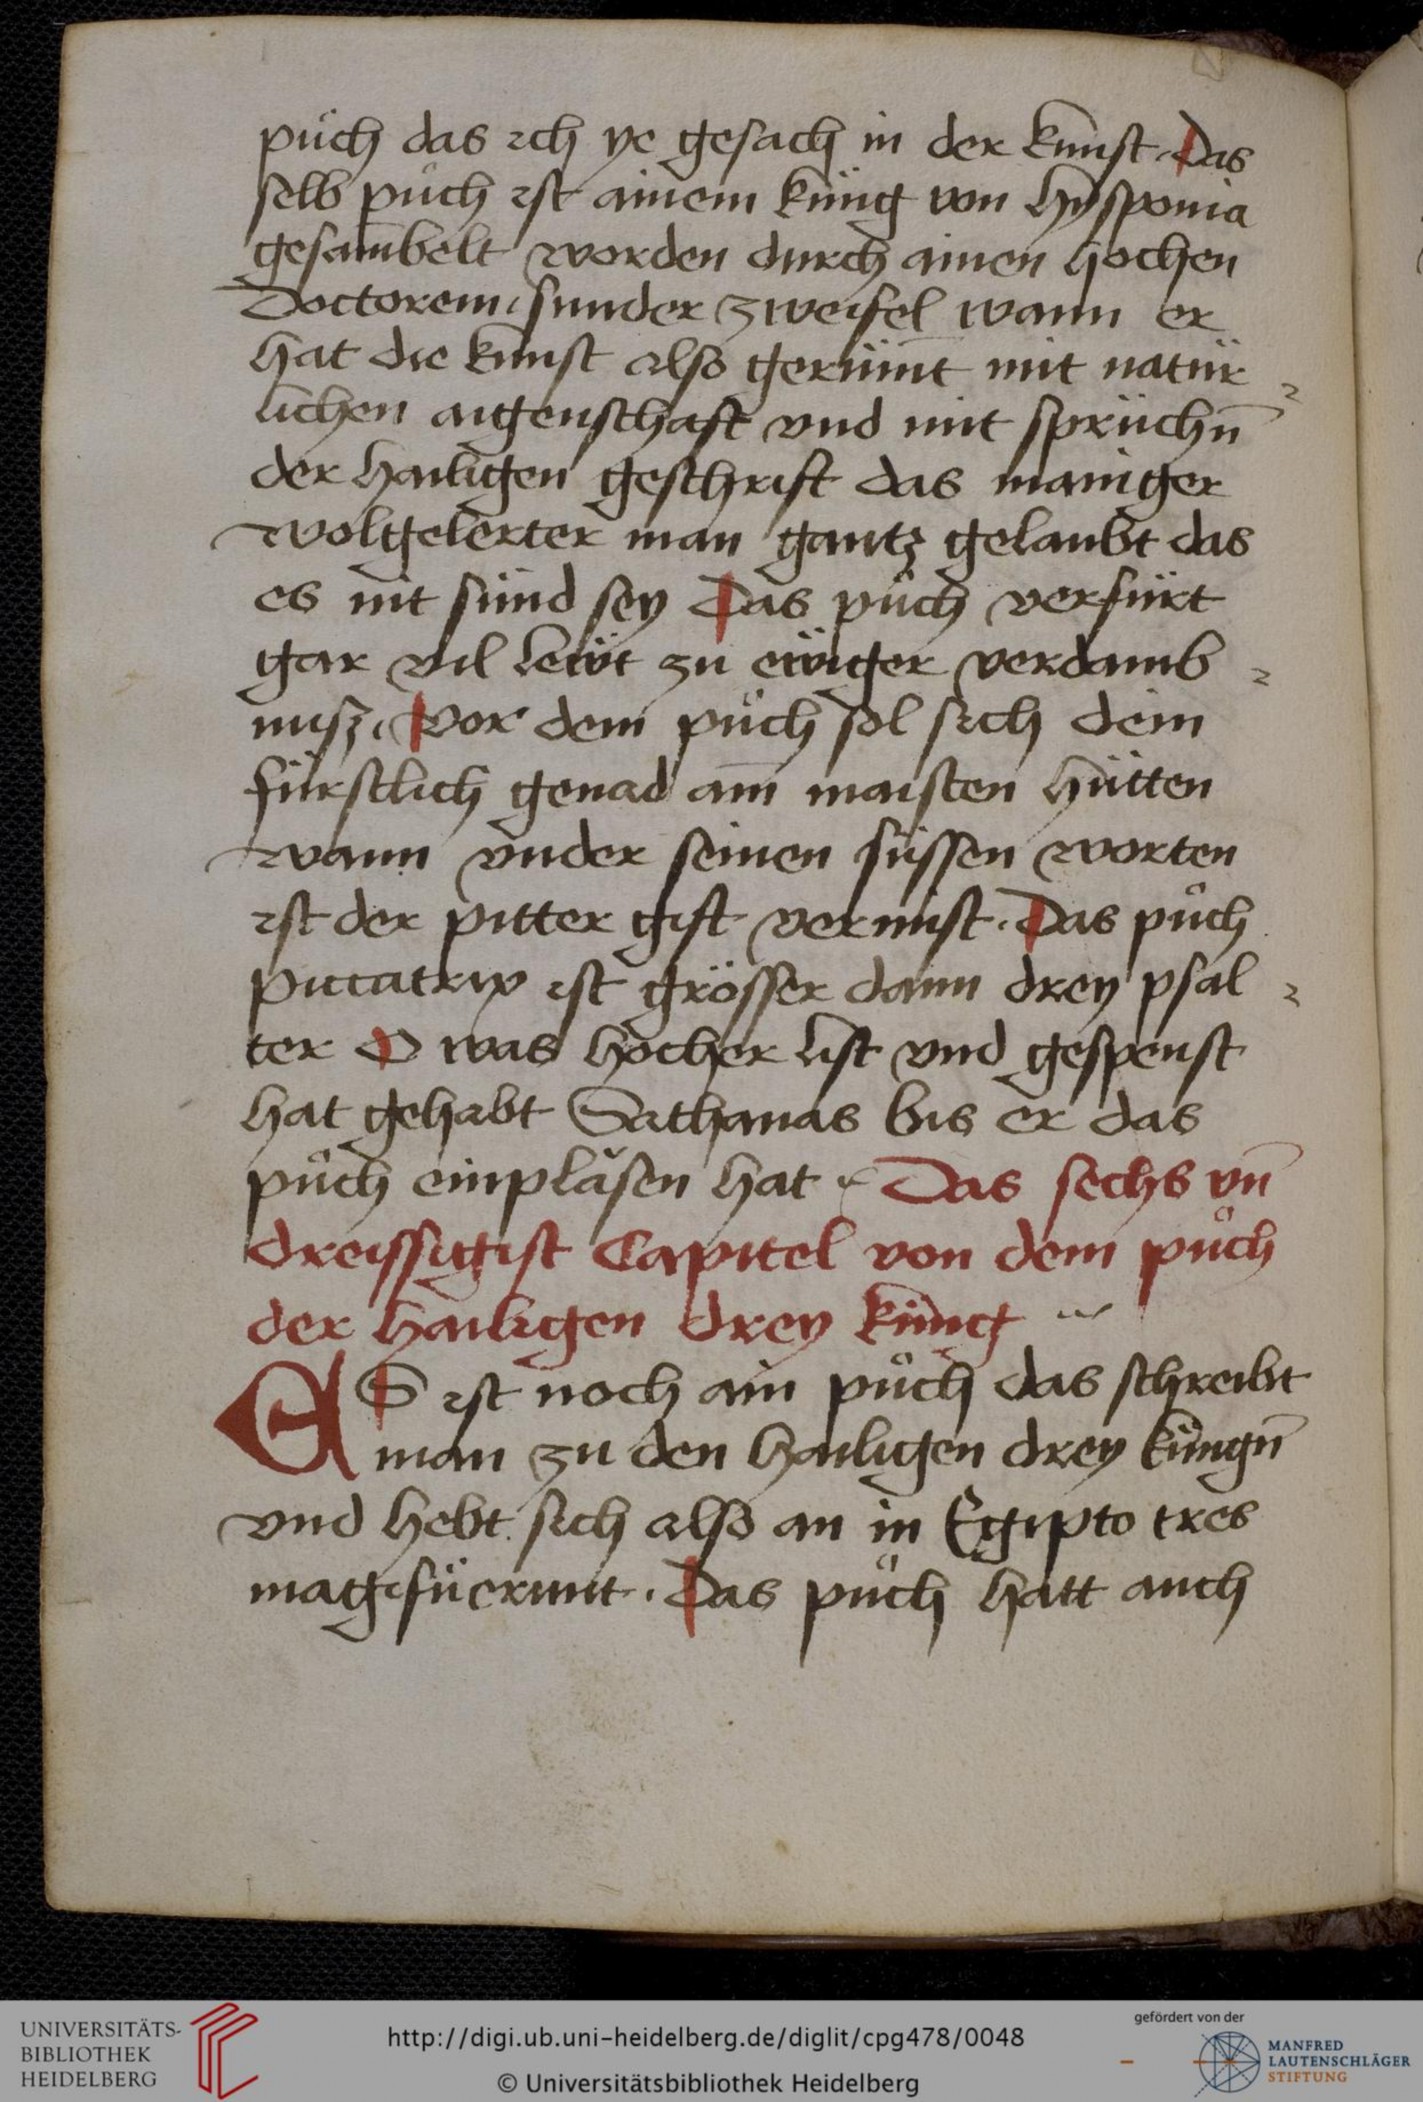 půch das ich ye gesach in der kunst. Das
selb půch ist ainem küng von hÿsponia
gesam̄belt worden durch ainen hochen
Doctorem, sunder zweifel wann er
hat die kunst also gerümt mit natür
lichen aigenschaft vnd mit sprüchn̄
der hailigen geschrift das maniger
wolgelerter man gantz gelaubt das
es nit sünd sey Das půch verfürt
gar vil lewt zu ewiger verdamb
nusz. Vor dem půch sol sich dein
fürstlich genad am̄ maisten hütten
wann vnder seinen süssen worten
ist der pitter gift vermist. Das půch
piccatrix ist grösser dann drey psal
ter O was hocher list vnd gespenst
hat gehabt Sathanas bis er das
půch einpläsen hat. Das sechs vn̄
dreissigist Capitel von dem půch
der hailigen drey küng
ES ist noch ain půch das schreibt
man zu den hailigen drey küngn̄
vnd hebt sich also an in Egipto tres
magi füerunt. Das půch hatt auch
UNIVERSITÄTS-
BIBLIOTHEK
HEIDELBERG
http://digi.ub.uni-heidelberg.de/diglit/cpg478/0048
© Universitätsbibliothek Heidelberg
gefördert von der
MANFRED
LAUTENSCHLÄGER
STIFTUNG